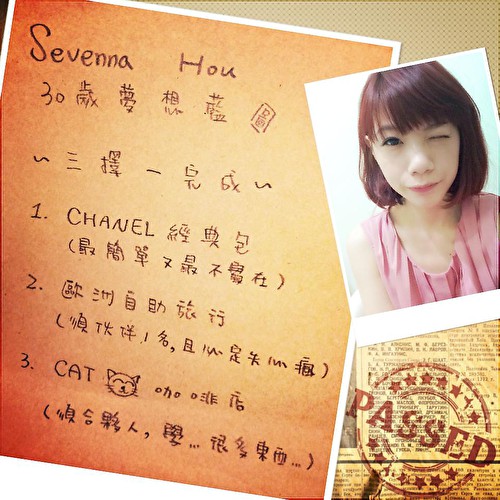 Sevenna Hou
30歲夢想藍圖
~三擇一完成~
1. CHANEL 經典包
(最簡單又最不實在)
2. 歐洲自助旅行
(須伙伴1名,且必定失心瘋)
3. CAT 咖啡店
(須合夥人, 學...很多東西...)
PASSED